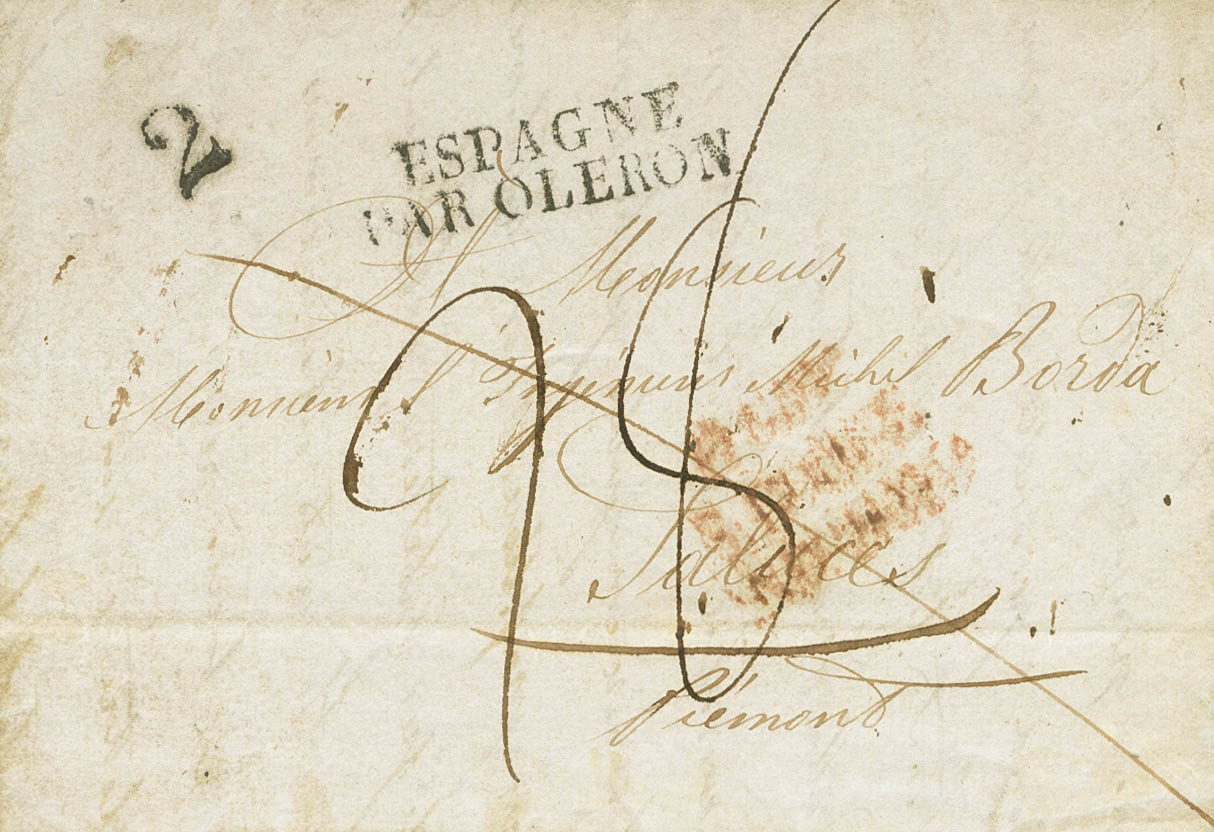 2
ESPAGNE
PAR OLERON
A Monsieur
Monsieur l' Michel Borda
Saluces
Piémond